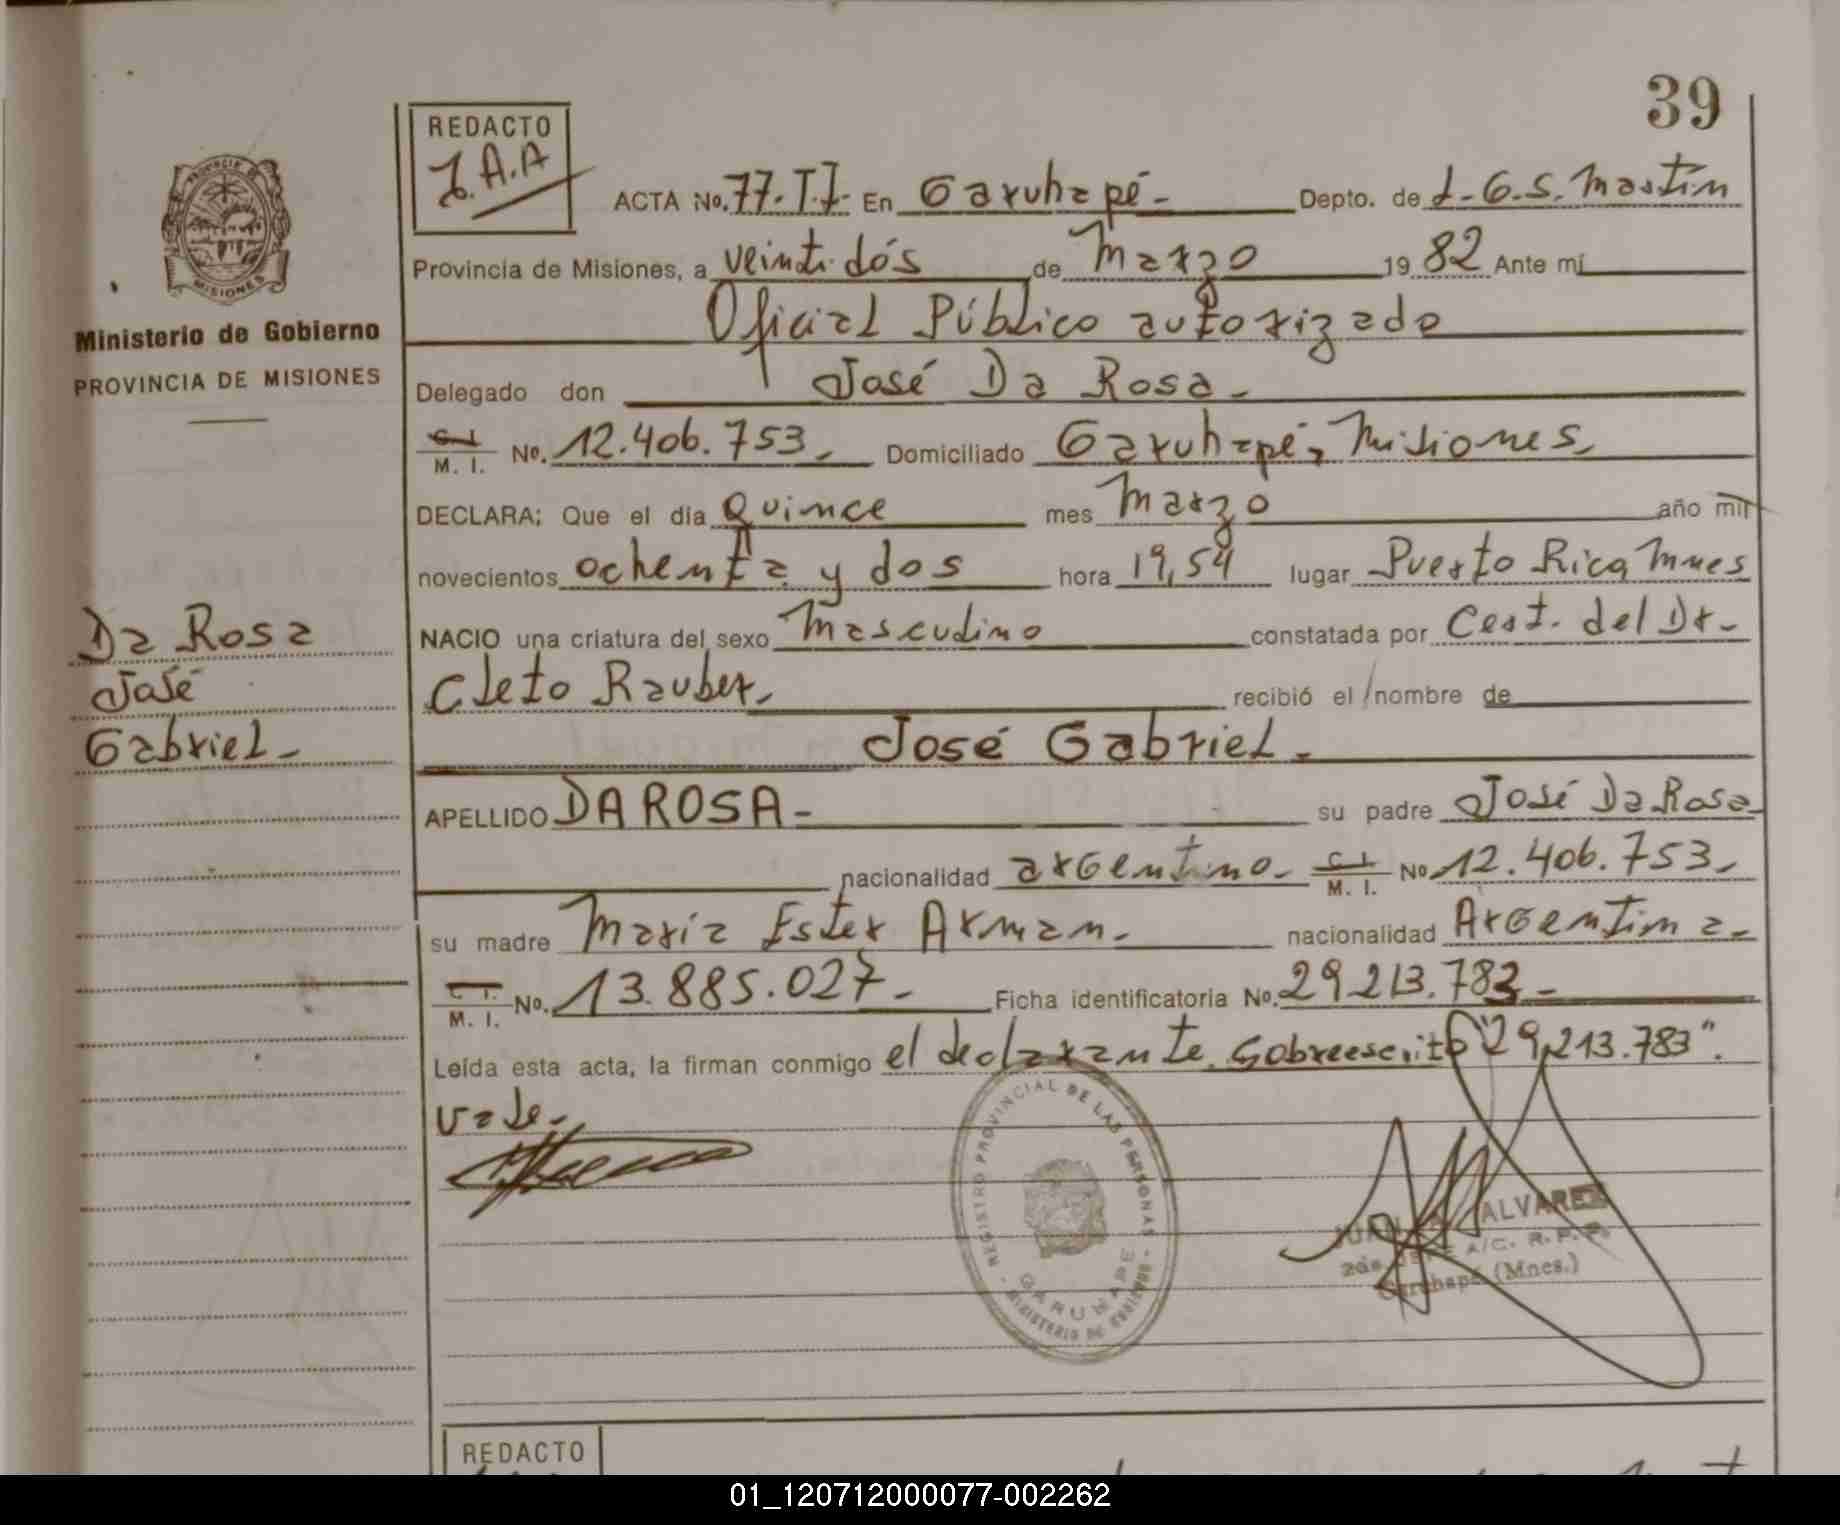 39
REDACTO
J.A.A
ACTA No. 77.T.I. En Garuhapé- Depto. de L.G.S. Martín
Provincia de Misiones, a veintidós de Marzo 19 82 Ante mí
Oficial Público autorizado
Delegado don José Da Rosa-
C. I. M. I. No. 12.406.753- Domiciliado Garuhapé, Misiones-
DECLARA; Que el día Quince mes Marzo año mil
novecientos ochenta y dos hora 19,54 lugar Puerto Rico, Mnes
NACIO una criatura del sexo Masculino constatada por Cert. del Dr-
Cleto Rauber- recibió el nombre de
José Gabriel-
APELLIDO DA ROSA- su padre José Da Rosa-
nacionalidad argentino- C. I. M. I. No 12.406.753-
su madre María Ester Arman- nacionalidad Argentina-
C. I. M. I. No. 13.885.027- Ficha identificatoria No. 29.213.783-
Leída esta acta, la firman conmigo el declarante. Sobreescrito "29.213.783".
vale-
PROVINCIA DE MISIONES
Ministerio de Gobierno
PROVINCIA DE MISIONES
Da Rosa
José
Gabriel-
REGISTRO PROVINCIAL DE LAS PERSONAS
GARUHAPE
MINISTERIO DE GOBIERNO
ALVAREZ
A/C. R. P. P.
Garuhapé (Mnes.)
REDACTO
01_120712000077-002262